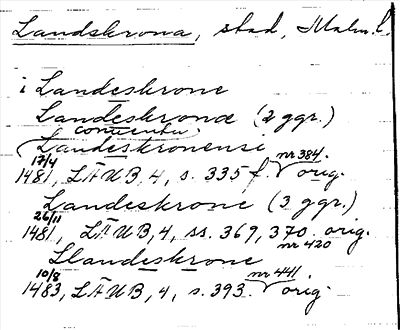 Landskrona, stad, Malm. l.
i Landeskrone
Landeskronæ (2 ggr.)
conventu
Landeskronensi
17/4 nr 384.
1481, LÄUB, 4, s. 335 f. orig.
Landeskrone (3 ggr.)
26/11
1481, LÄUB, 4, ss. 369, 370 orig.
nr 420
Llandeskrone
10/8 nr 441.
1483, LÄUB, 4, s. 393. orig.